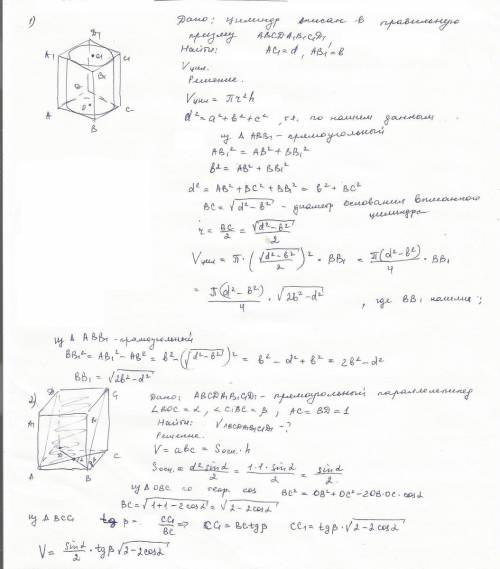 1)
D1
A1 O1 C1
B1
D
A O C
B
Дано: цилиндр вписан в правильную
призму ABCDA1B1C1D1
Найти: AC1 = d, AB1 = b
Vцил.
Решение.
Vцил = πr²h
d² = a² + b² + c², т.к. по нашим данным
из Δ ABB1 - прямоугольный
AB1² = AB² + BB1²
b² = AB² + BB1²
d² = AB² + BC² + BB1² = b² + BC²
BC = √(d² - b²) - диаметр основания вписанного
цилиндра
r = BC/2 = √(d² - b²)/2
Vцил = π · (√(d² - b²)/2)² · BB1 = π(d² - b²)/4 · BB1
= π(d² - b²)/4 · √(2b² - d²), где BB1 нашли;
из Δ ABB1 - прямоугольный
BB1² = AB1² - AB² = b² - (√(d² - b²))² = b² - d² + b² = 2b² - d²
BB1 = √(2b² - d²)
2)
D1 C1
A1 B1
D C
A B
Дано: ABCDA1B1C1D1 - прямоугольный параллелепипед
∠BOC = α, ∠C1BC = β, AC = BD = 1
Найти: VABCDA1B1C1D1 - ?
Решение.
V = abc = Sосн. · h
Sосн. = d² sinα/2 = 1·1·sinα/2 = sinα/2
из Δ OBC по теор. cos BC² = OB² + OC² - 2OB·OC·cosα
BC = √(1+1-2cosα) = √(2-2cosα)
из Δ BCC1 tgβ = CC1/BC ⇒ CC1 = BC tgβ CC1 = tgβ · √(2-2cosα)
V = sinα/2 · tgβ √(2-2cosα)